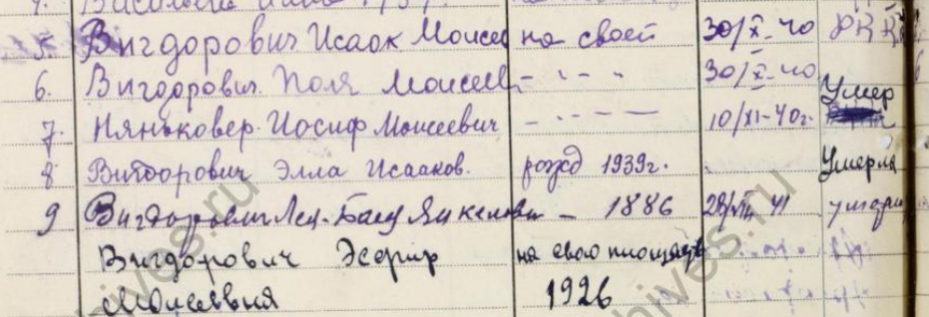 5. Вигдорович Исаак Моисее на своей 30/X-40
6. Вигдорович Поля Моисеев - " - " 30/X-40 Умер
7. Няньковер Иосиф Моисеевич - " - 10/XI-40г.
8 Вигдорович Элла Исааков. рожд 1939г. Умерла
9 Вигдорович Янкелев - 1886 28/ 41 умерла
Вигдорович Эсфир на свою площадь
Моисеевня 1926